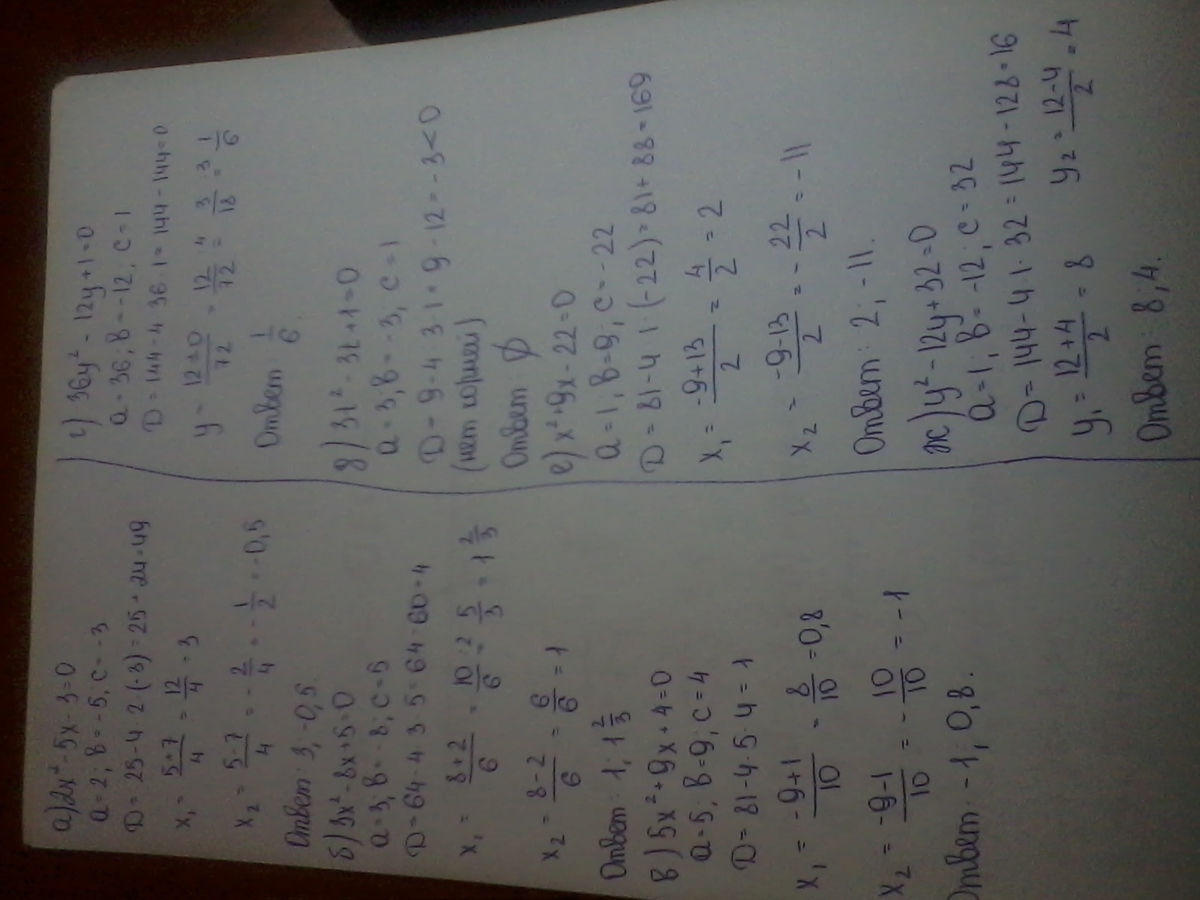 а) 2x² - 5x - 3 = 0
a = 2; b = -5; c = -3
D = 25 - 4 · 2 · (-3) = 25 + 24 = 49
x₁ = (5+7)/4 = 12/4 = 3
x₂ = (5-7)/4 = -2/4 = -1/2 = -0,5
Ответ: 3; -0,5.
б) 3x² - 8x + 5 = 0
a = 3; b = -8; c = 5
D = 64 - 4 · 3 · 5 = 64 - 60 = 4
x₁ = (8+2)/6 = 10/6 :2 = 5/3 = 1 2/3
x₂ = (8-2)/6 = 6/6 = 1
Ответ: 1; 1 2/3
в) 5x² + 9x + 4 = 0
a = 5; b = 9; c = 4
D = 81 - 4 · 5 · 4 = 1
x₁ = (-9+1)/10 = -8/10 = 0,8
x₂ = (-9-1)/10 = -10/10 = -1
Ответ: -1; 0,8.
г) 36y² - 12y + 1 = 0
a = 36; b = -12; c = 1
D = 144 - 4 · 36 · 1 = 144 - 144 = 0
y = (12±0)/72 = 12/72 :4 = 3/18 :3 = 1/6
Ответ: 1/6.
д) 3t² - 3t + 1 = 0
a = 3; b = -3; c = 1
D = 9 - 4 · 3 · 1 = 9 - 12 = -3 < 0
(нет корней)
Ответ: ∅
е) x² + 9x - 22 = 0
a = 1; b = 9; c = -22
D = 81 - 4 · 1 · (-22) = 81 + 88 = 169
x₁ = (-9+13)/2 = 4/2 = 2
x₂ = (-9-13)/2 = -22/2 = -11
Ответ: 2; -11.
ж) y² - 12y + 32 = 0
a = 1; b = -12; c = 32
D = 144 - 4 · 1 · 32 = 144 - 128 = 16
y₁ = (12+4)/2 = 8 y₂ = (12-4)/2 = 4
Ответ: 8; 4.